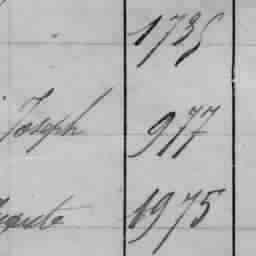 1735
Joseph 977
1975